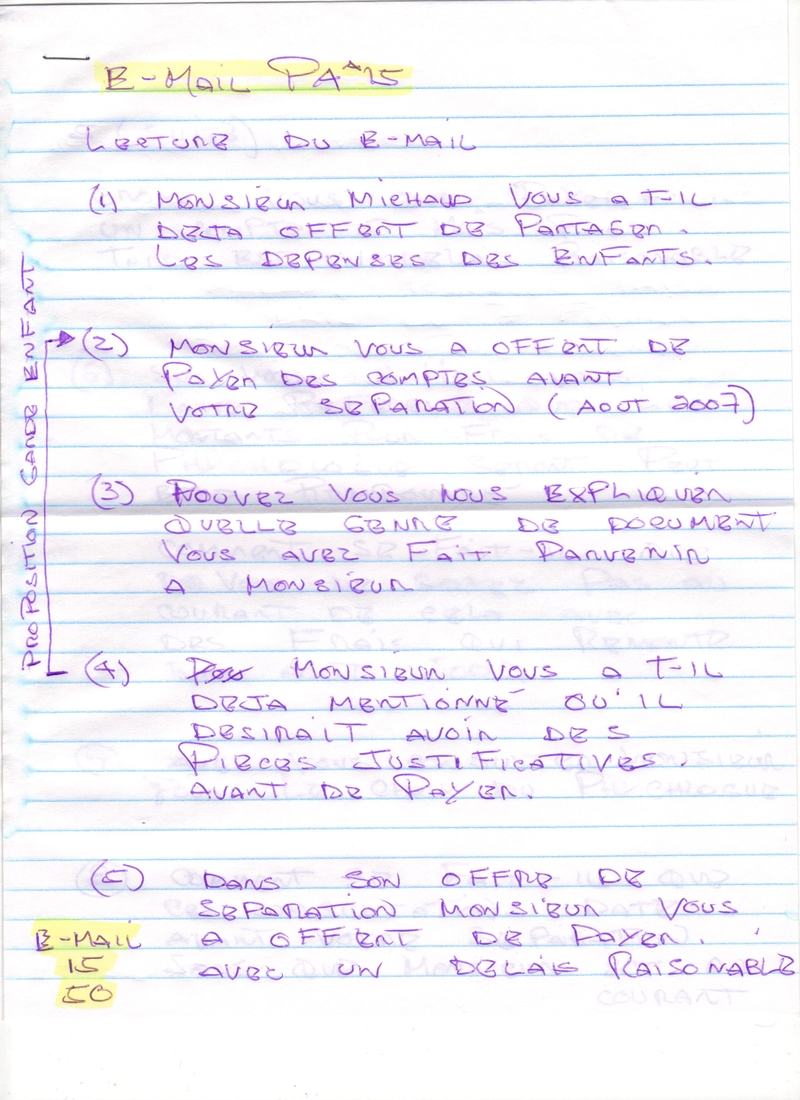 E-MAIL PA^15
LECTURE DU E-MAIL
(1) MONSIEUR MICHAUD VOUS A T-IL
DEJA OFFERT DE PARTAGER.
LES DEPENSES DES ENFANTS.
(2) MONSIEUR VOUS A OFFERT DE
PAYER DES COMPTES AVANT
VOTRE SEPARATION (AOUT 2007)
(3) POUVEZ VOUS NOUS EXPLIQUER
QUELLE GENRE DE DOCUMENT
VOUS AVEZ FAIT PARVENIR
A MONSIEUR
(4) MONSIEUR VOUS A T-IL
DEJA MENTIONNÉ QU'IL
DESIRAIT AVOIR DES
PIECES JUSTIFICATIVES.
AVANT DE PAYER.
PROPOSITION GARDE ENFANT
(5) DANS SON OFFRE DE
SEPARATION MONSIEUR VOUS
A OFFERT DE PAYER.
AVEC UN DELAIS RAISONABLE
E-MAIL
15
50
COURANT